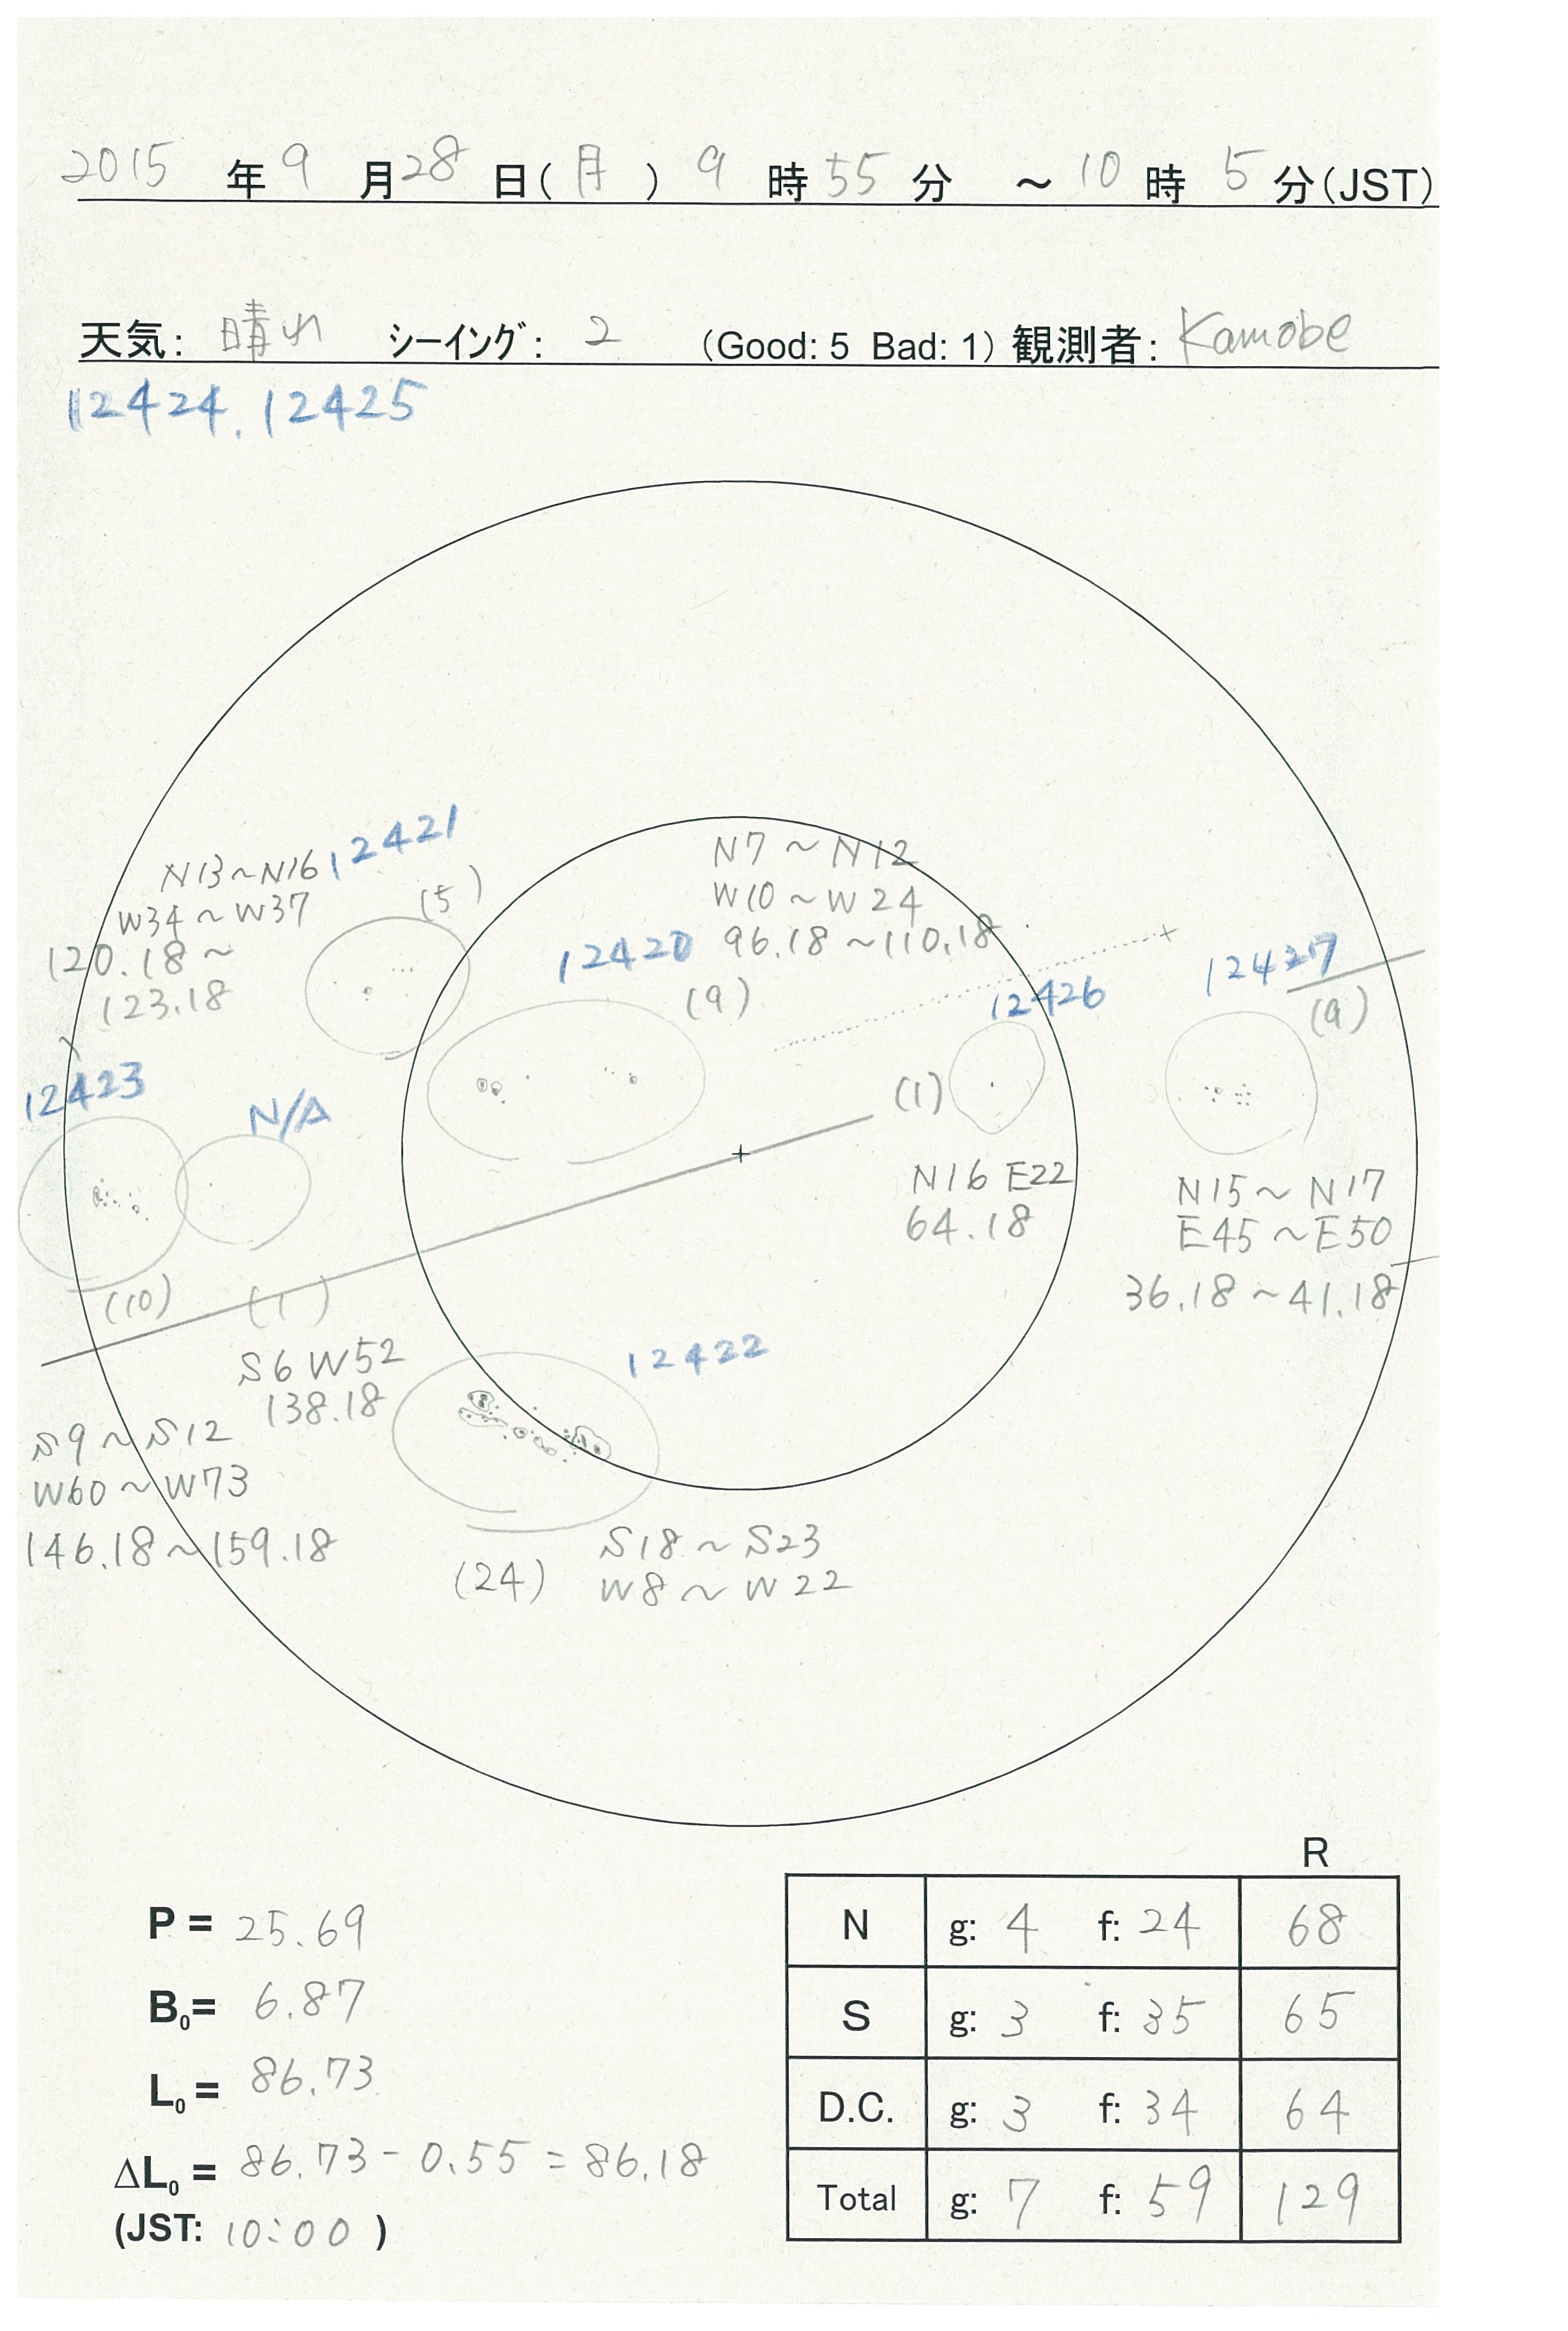 2015 年 9 月 28 日(月) 9 時 55 分 ～ 10 時 5 分(JST)
天気: 晴れ シーイング: 2 (Good: 5 Bad: 1) 観測者: Kamobe
12424, 12425
12421
N13～N16
W34～W37
(5)
120.18～
123.18
N7～N12
W10～W24
96.18～110.18
12420
(9)
12426
(1)
N16 E22
64.18
12427
(9)
N15～N17
E45～E50
36.18～41.18
12423
(10)
N/A
(1)
S6 W52
138.18
S9～S12
W60～W73
146.18～159.18
12422
(24)
S18～S23
W8～W22
R
N g: 4 f: 24 68
S g: 3 f: 35 65
D.C. g: 3 f: 34 64
Total g: 7 f: 59 129
P = 25.69
B0= 6.87
L0 = 86.73
ΔL0 = 86.73 - 0.55 = 86.18
(JST: 10:00 )